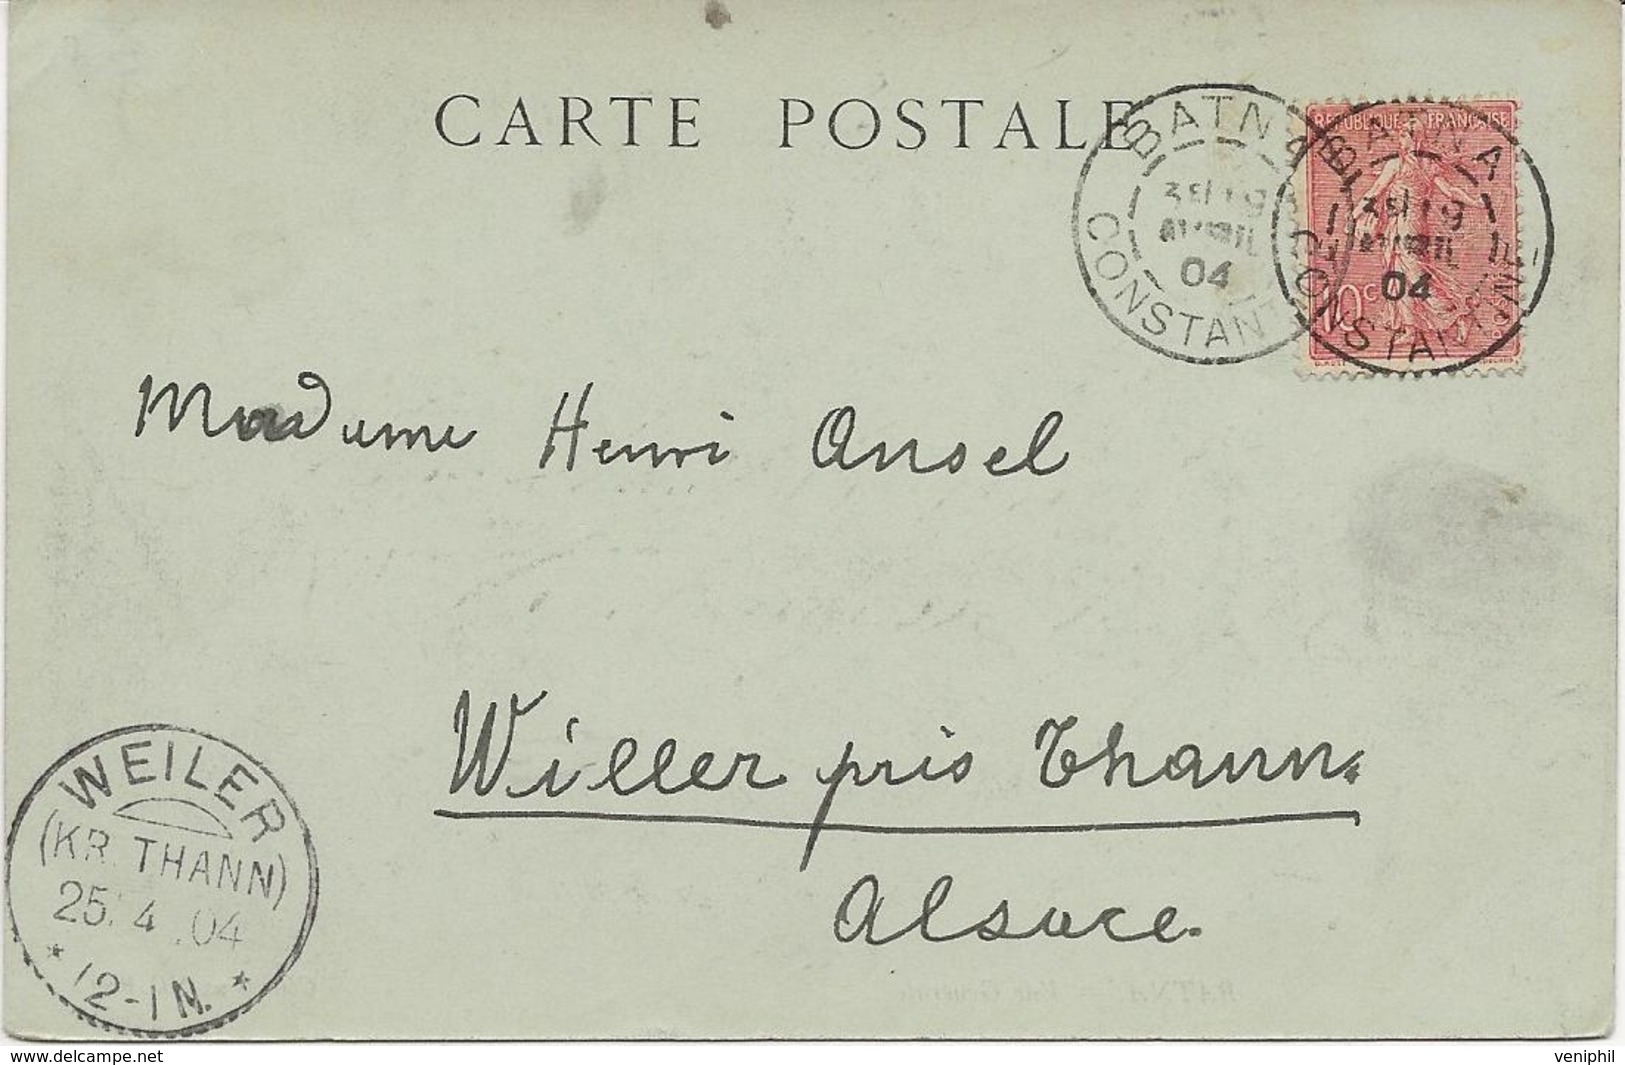 CARTE POSTALE
REPUBLIQUE FRANÇAISE
10c
BATNA
3E/19
AVRIL
04
CONSTANTINE
BATNA
3E/19
AVRIL
04
CONSTANTINE
Madame Henri Ansel
Willer près Thann
Alsace.
WEILER
(KR. THANN)
25. 4 .04
* 12-1 N. *
BATNA - Vue Générale
www.delcampe.net
veniphil